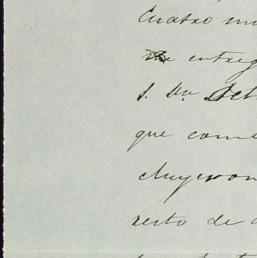 Cuatro mi
se entreg
S. Dn. Act
que come
cluyeron
resto de